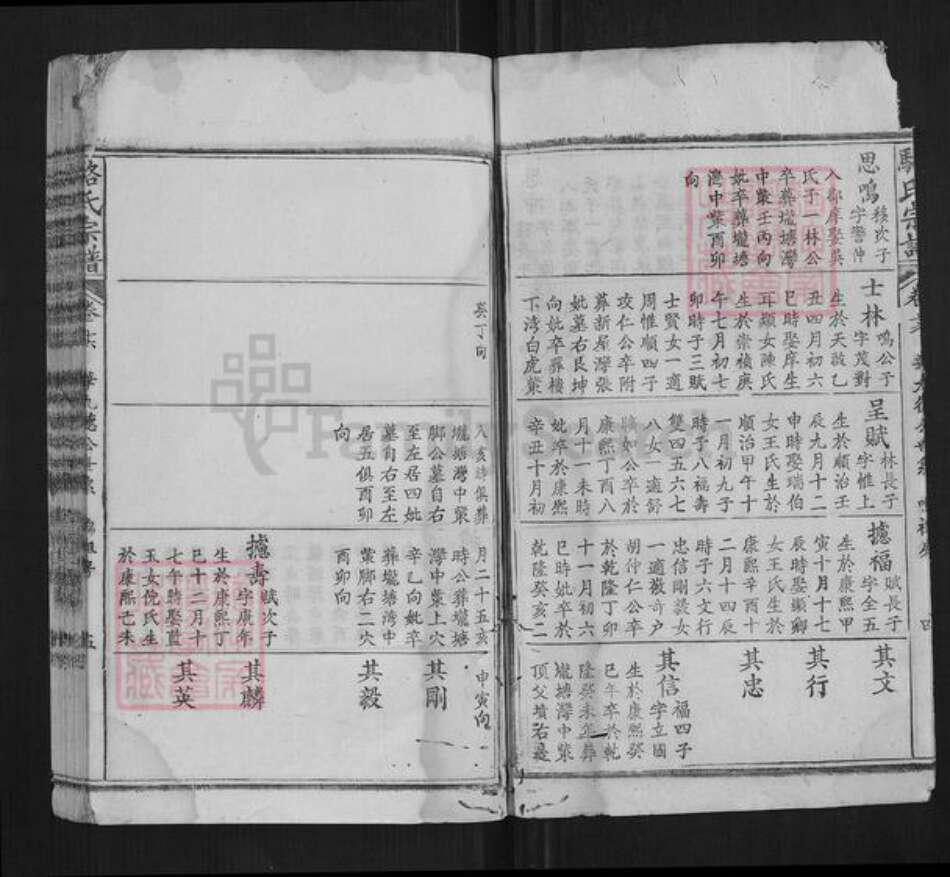 駱氏宗譜
思鳴
移次子
字響仲
入郡庠娶吳
氏子一林公
卒葬壠塘灣
中業壬丙向
妣卒葬壠塘
灣中業酉卯
向
士林
鳴公子
字茂對
生於天啟乙
丑四月初六
巳時娶庠生
耳顯女陳氏
生於崇禎庚
午七月初七
卯時子三賦
士賢女一適
周惟順四子
攻仁公卒附
葬新屋灣張
妣墓右艮坤
向妣卒葬樓
下湾白虎業
癸丁向
呈賦
林長子
字惟上
生於順治壬
辰九月十二
申時娶瑞伯
女王氏生於
順治甲午十
一月初九子
時子八福壽
雙四五六七
八女一適舒
鎬如公卒於
康熙丁酉八
月十一未時
妣卒於康熙
辛丑十月初
八亥時俱葬
壠塘灣中業
脚公墓自右
至左居四妣
墓自右至左
居五俱酉卯
向
攄福
賦長子
字全五
生於康熙甲
寅十月十七
辰時娶顯卿
女王氏生於
康熙辛酉十
二月十四辰
時子六文行
忠信剛毅女
一適敬奇户
胡仲仁公卒
於乾隆丁卯
十一月初六
巳時妣卒於
乾隆癸亥二
月二十五亥
時公葬壠塘
灣中業上穴
辛乙向妣卒
葬壠塘湾中
業脚右二穴
酉卯向
攄壽
賦次子
字庚年
生於康熙丁
巳十二月十
七午時娶监
玉女倪氏生
於康熙己未
其文
其行
其忠
其信
福四子
字立國
生於康熙癸
巳年卒於乾
隆癸未年葬
壠塘灣中業
頂父墳右邊
申寅向
其剛
其毅
其麟
其英
駱氏宗譜